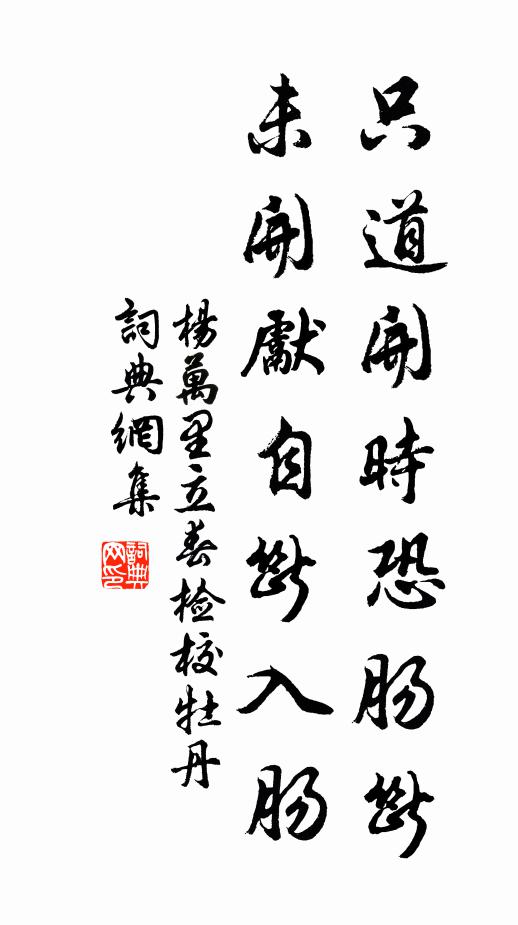 只道開時恐腸斷
未開獻自斷入腸
楊萬里立春檢校牡丹
詞典網集
詞典
网印